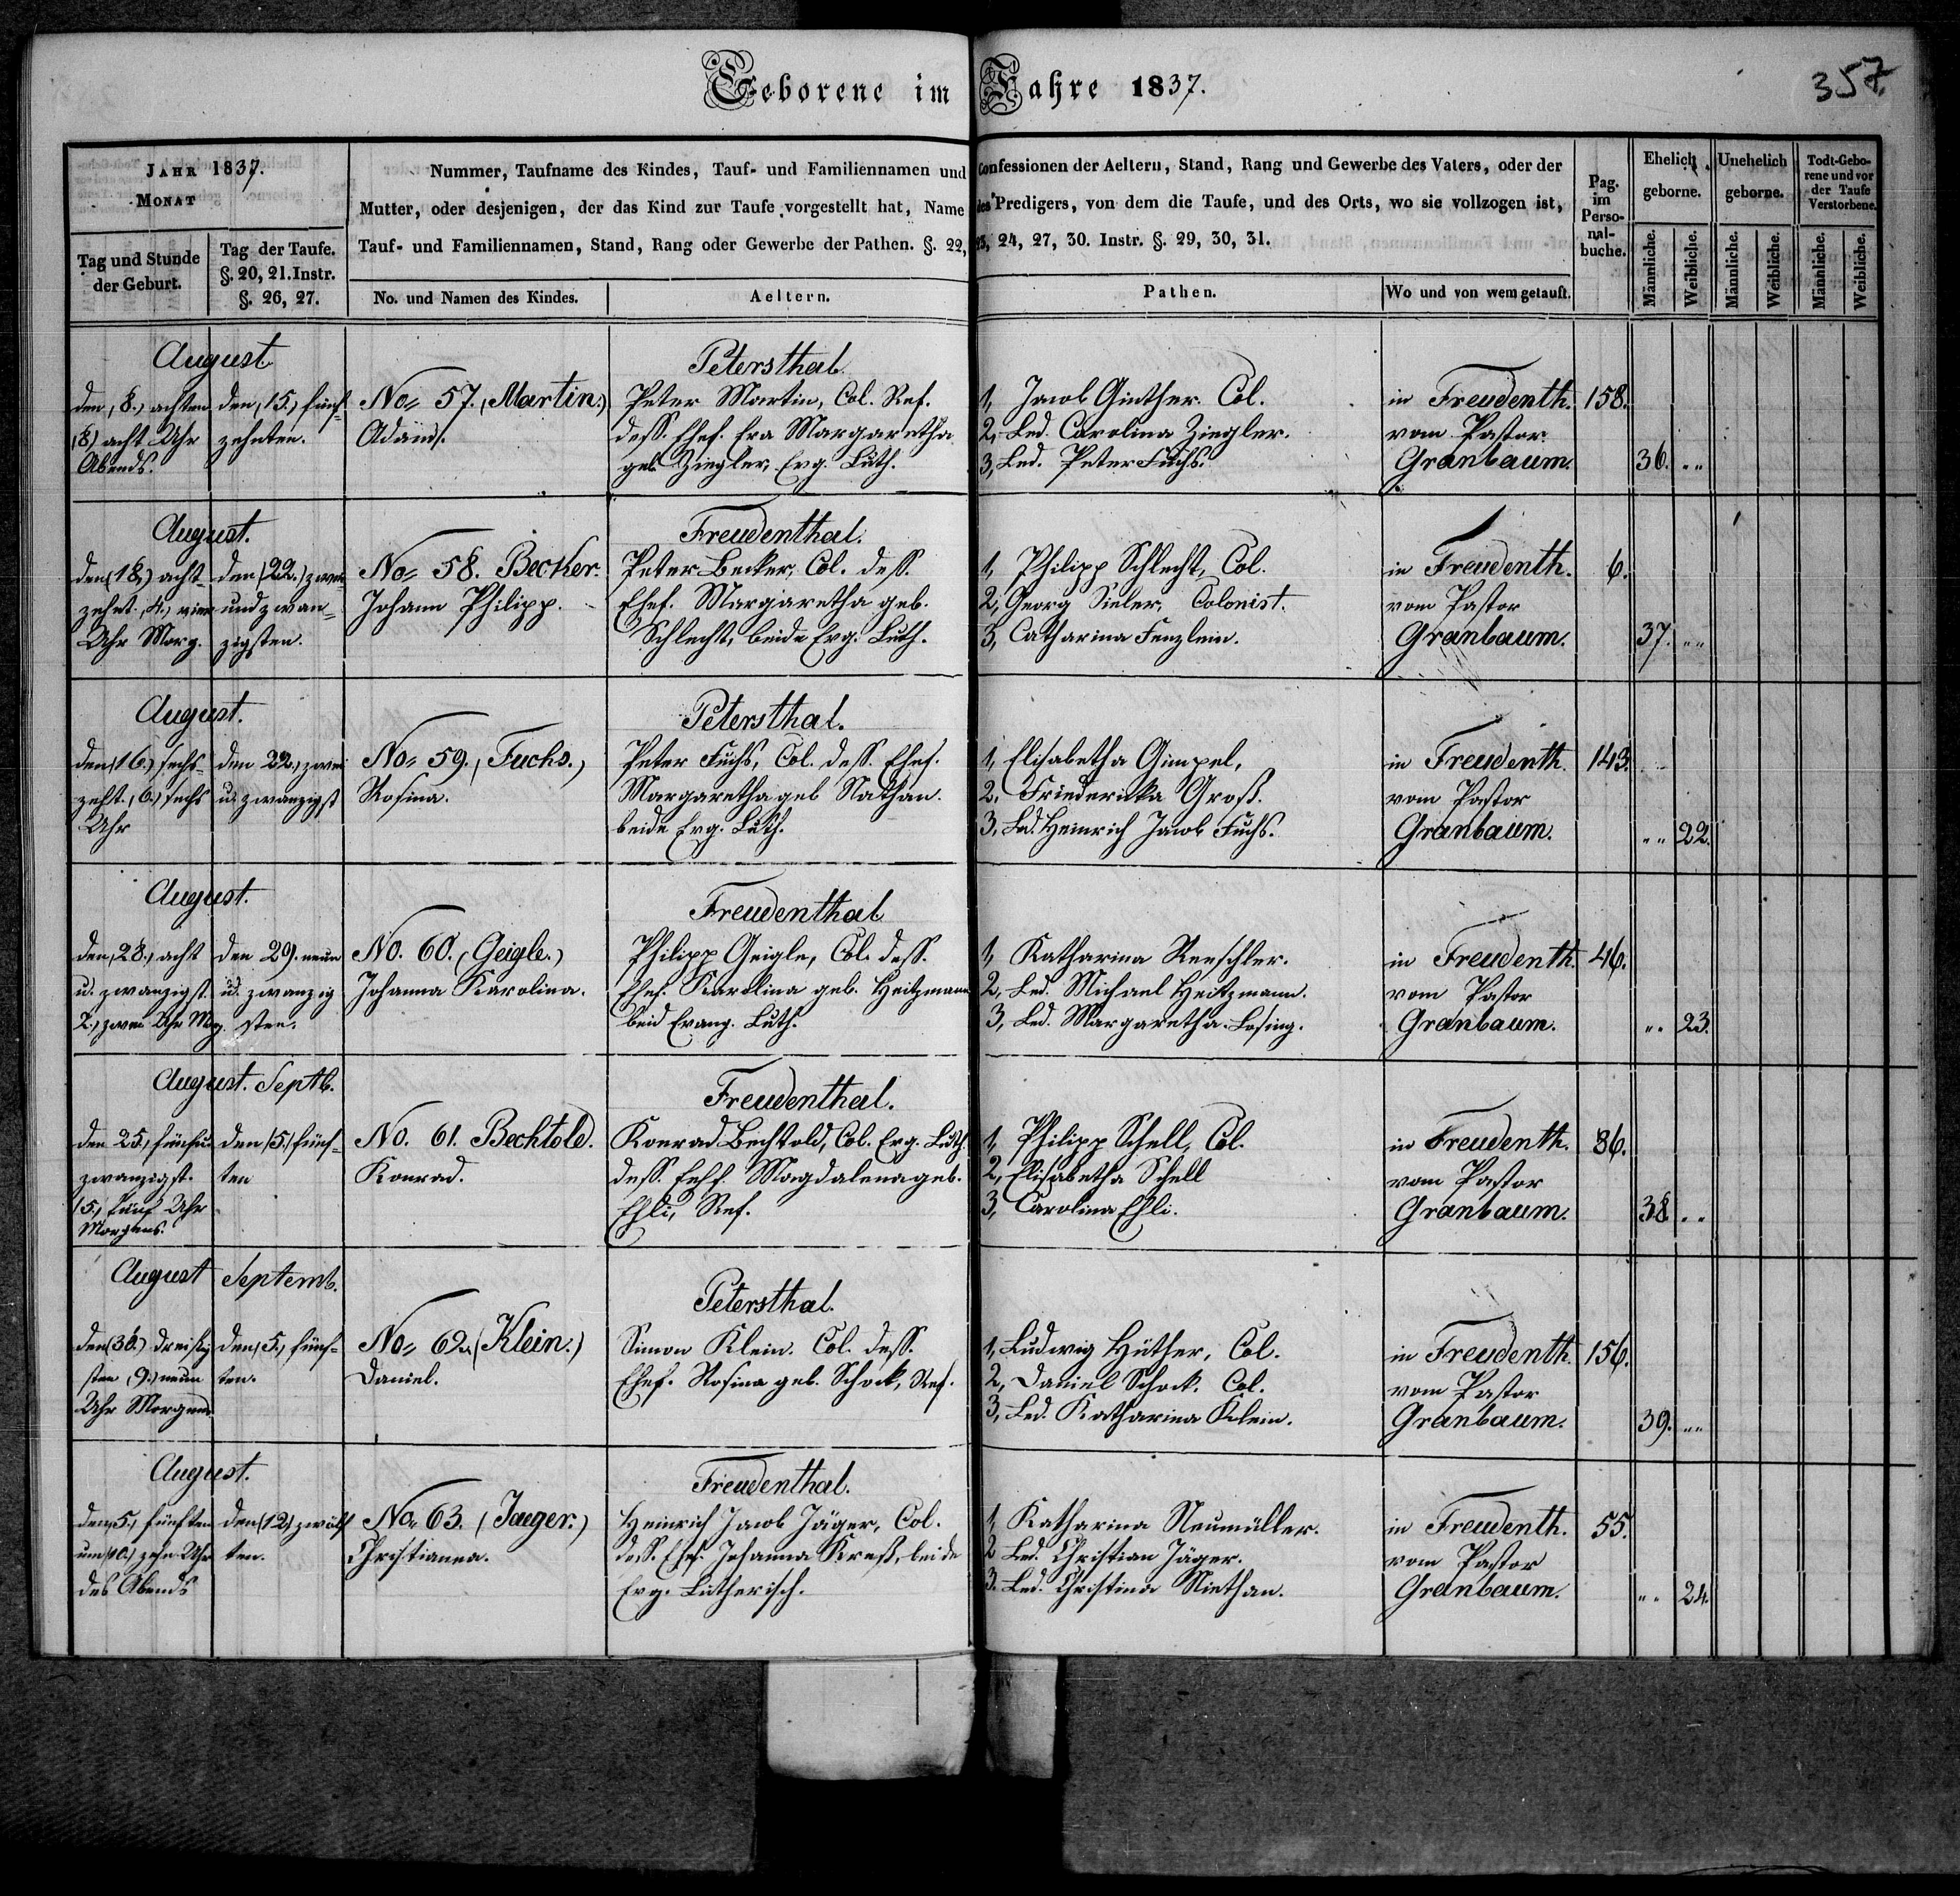 Geborene im Jahre 1837.
357.
JAHR 1837.
MONAT
Tag und Stunde
der Geburt.
Tag der Taufe.
§. 20, 21. Instr.
§. 26, 27.
Nummer, Taufname des Kindes, Tauf- und Familiennamen und Confessionen der Aeltern, Stand, Rang und Gewerbe des Vaters, oder der
Mutter, oder desjenigen, der das Kind zur Taufe vorgestellt hat, Name des Predigers, von dem die Taufe, und des Orts, wo sie vollzogen ist,
Tauf- und Familiennamen, Stand, Rang oder Gewerbe der Pathen. §. 22, 23, 24, 27, 30. Instr. §. 29, 30, 31.
No. und Namen des Kindes.
Aeltern.
Pathen.
Wo und von wem getauft.
Pag.
im
Perso-
nal-
buche.
Ehelich
geborne.
Unehelich
geborne.
Todt-Gebo-
rene und vor
der Taufe
Verstorbene.
Männliche.
Weibliche.
Männliche.
Weibliche.
Männliche.
Weibliche.
August
den (8.) achten
(8) acht Uhr
Abends.
den (15.) fünf-
zehnten.
No. 57. (Martin.)
Adam.
Petersthal.
Peter Martin, Col. Ref.
dess. Ehef. Eva Margaretha
geb. Ziegler, Evg. Luth.
1, Jacob Ginther. Col.
2, Led. Carolina Ziegler.
3, Led. Peter Fuchs.
in Freudenth.
vom Pastor
Granbaum.
158.
36. „ „
August.
den (18.) acht-
zehnt. (4.) vier
Uhr Morg.
den (22.) zwei
und zwan-
zigsten.
No. 58. Becker.
Johann Philipp.
Freudenthal.
Peter Becker, Col. dess.
Ehef. Margaretha geb.
Schlecht, beide Evg. Luth.
1, Philipp Schlecht, Col.
2, Georg Sieler, Colonist.
3, Catharina Fenzlein.
in Freudenth.
vom Pastor
Granbaum.
6.
37. „ „
August.
den (16.) sechs-
zehnt. (6.) sechs
Uhr
den 22.) zwei
u. zwanzigst
No. 59. (Fuchs.)
Rosina.
Petersthal.
Peter Fuchs, Col. dess. Ehef.
Margaretha geb Nathan.
beide Evg. Luth.
1, Elisabetha Gimpel,
2. Friedericka Groß.
3, Led. Heinrich Jacob Fuchs.
in Freudenth.
vom Pastor
Granbaum.
143.
„ „ 22.
August.
den (28.) acht
u. zwanzigst.
2.) zwei Uhr Mrg.
den 29). neun
u. zwanzig
sten.
No. 60. (Geigle.)
Johanna Karolina.
Freudenthal
Philipp Geigle, Col. dess.
Ehef. Karolina geb. Heitzmann
beid Evang. Luth.
1, Katharina Renschler.
2, Led. Michael Heitzmann.
3, Led. Margaretha Losing.
in Freudenth.
vom Pastor
Granbaum.
46.
„ „ 23.
August. Septb.
den 25.) fünfu.
zwanzigst.
(5.) fünf Uhr
Morgens.
den (5.) fünf-
ten
No. 61. Bechtold.
Konrad.
Freudenthal.
Konrad Bechtold, Col. Evg. Luth.
dess. Ehef. Magdalena geb.
Ehli, Ref.
1, Philipp Schell, Col.
2, Elisabetha Schell
3, Carolina Ehli.
in Freudenth.
vom Pastor
Granbaum.
86.
38 „ „
August Septemb.
den (30.) dreißig
sten (9.) neun
Uhr Morgens
den (5.) fünf-
ten.
No. 62. (Klein.)
Daniel.
Petersthal.
Simon Klein. Col. dess.
Ehef. Rosina geb. Schock, Ref.
1, Ludwig Hüther, Col.
2, Daniel Schock. Col.
3, Led. Katharina Klein.
in Freudenth.
vom Pastor
Granbaum.
156.
39. „ „
August.
den 5.) fünften
um (10.) zehn Uhr
des Abends
den (12.) zwölf
ten.
No. 63. (Jaeger.)
Christianna.
Freudenthal.
Heinrich Jacob Jäger, Col.
dess. Ehef. Johanna Kreß, beide
Evg. Lutherisch.
1, Katharina Neumüller.
2 Led. Christian Jäger.
3. Led. Christina Niethan.
in Freudenth.
vom Pastor
Granbaum.
55.
„ „ 24.